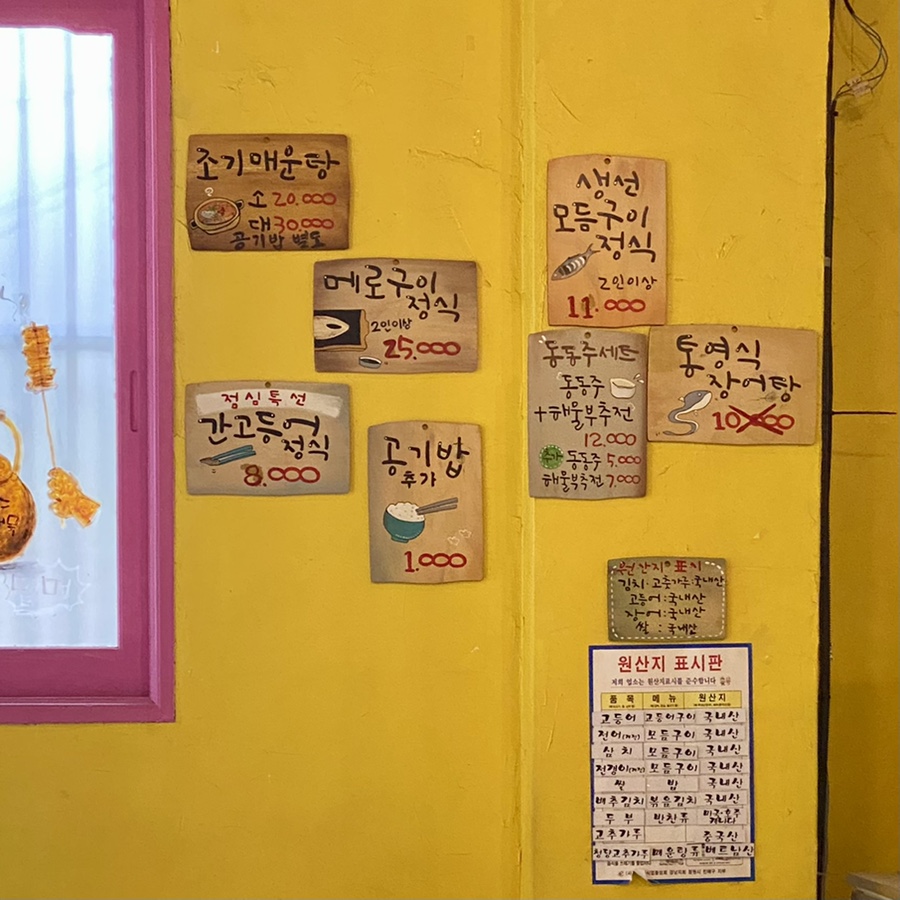 조기매운탕
소 20.000
대 30.000
공기밥 별도
메로구이
정식
2인이상
25.000
점심특선
간고등어
정식
8.000
공기밥
추가
1.000
생선
모듬구이
정식
2인이상
11.000
동동주세트
동동주
+해물부추전
12.000
추가 동동주 5.000
해물부추전 7.000
통영식
장어탕
원산지 표시
김치·고춧가루:국내산
고등어:국내산
장어:국내산
쌀 : 국내산
원산지 표시판
저희 업소는 원산지표시를 준수합니다
품목 메뉴 원산지
고등어 고등어구이 국내산
전어 모듬구이 국내산
삼치 모듬구이 국내산
전갱이 모듬구이 국내산
쌀 밥 국내산
배추김치 볶음김치 국내산
두부 반찬류 미국·호주
캐나다
고추가루 중국산
매운탕류 베트남산